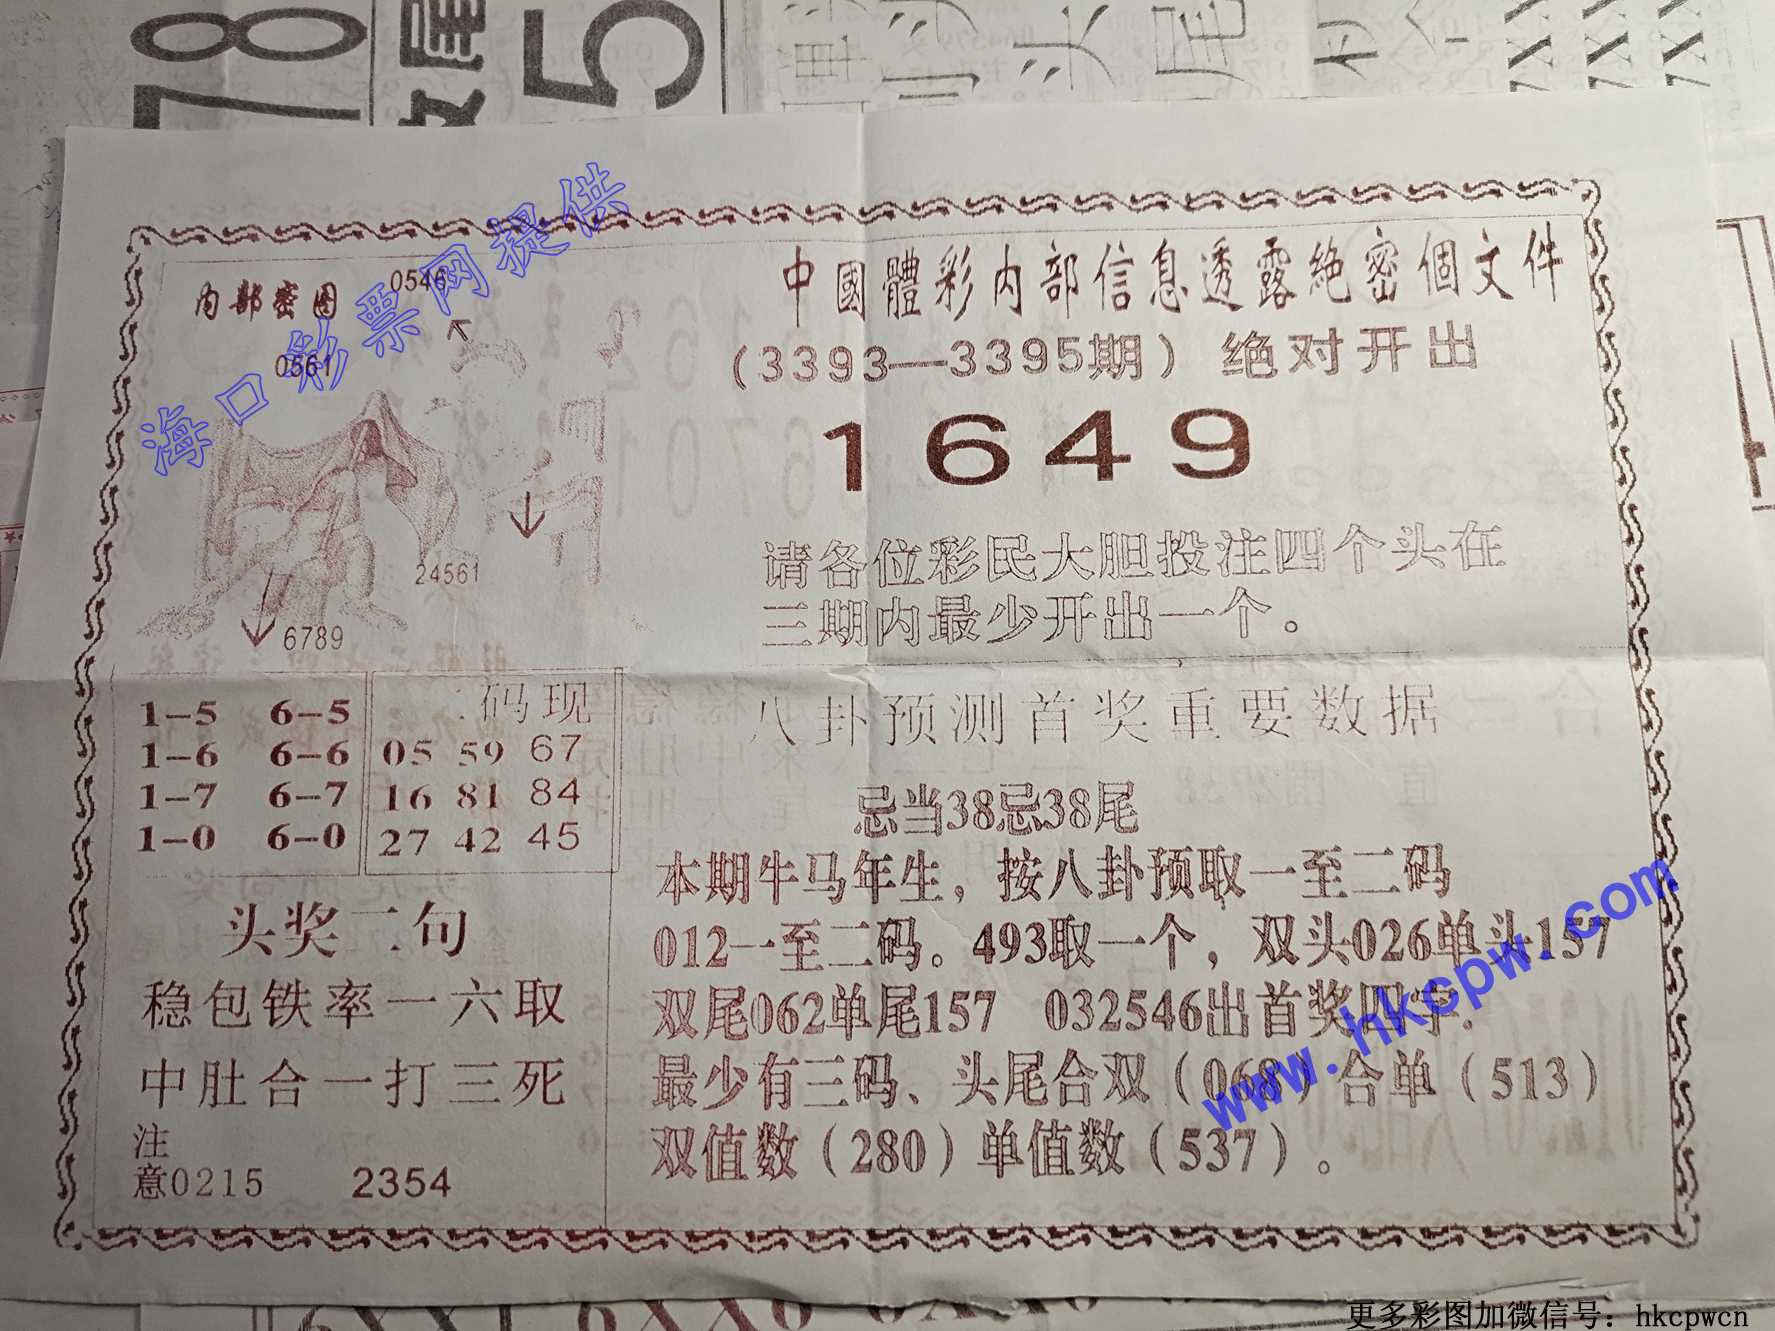 78
5
海口彩票网提供
内部密图
0546
0561
24561
6789
中國體彩内部信息透露絶密個文件
(3393—3395期) 绝对开出
1649
请各位彩民大胆投注四个头在
三期内最少开出一个。
1-5 6-5
1-6 6-6
1-7 6-7
1-0 6-0
码现
05 59 67
16 81 84
27 42 45
头奖二句
稳包铁率一六取
中肚合一打三死
注
意0215 2354
八卦预测首奖重要数据
忌当38忌38尾
本期牛马年生，按八卦预取一至二码
012一至二码。493取一个，双头026单头157
双尾062单尾157 032546出首奖四字.
最少有三码、头尾合双(068)合单(513)
双值数(280)单值数(537)。
www.hkcpw.com
更多彩图加微信号：hkcpwcn